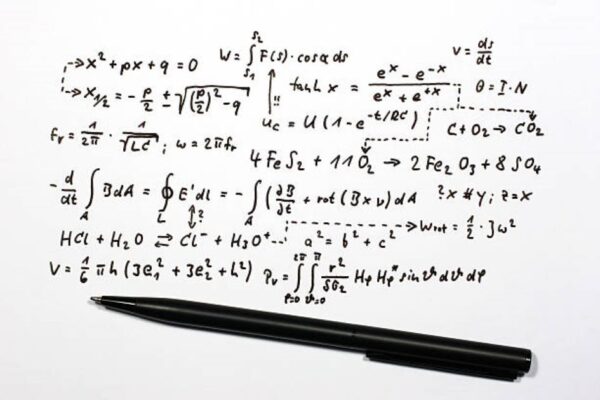 x² + px + q = 0
W = ∫ₛ₁ˢ² F(s) · cosα ds
v = ds/dt
x₁/₂ = - p/2 ± √((p/2)² - q)
!!
tanh x = (eˣ - e⁻ˣ)/(eˣ + e⁺ˣ)
θ = I · N
u_C = U (1 - e^(-t/RC))
C + O₂ → CO₂
fᵣ = 1/2π · 1/√LC ; ω = 2πfᵣ
4 FeS₂ + 11 O₂ → 2 Fe₂O₃ + 8 SO₄
- d/dt ∫_A B dA = ∮_L E' dl = - ∫_A (∂B/∂t + rot (B × v) dA
?x # y; z = x
?
W_rot = 1/2 · J ω²
HCl + H₂O ⇌ Cl⁻ + H₃O⁺
a² = b² + c²
V = 1/6 π h (3e₁² + 3e₂² + h²)
Pᵥ = ∫_(φ=0)^(2π) ∫_(ϑ=0)^(π) r²/δG₂ Hφ Hφ* sin ϑ dϑ dφ